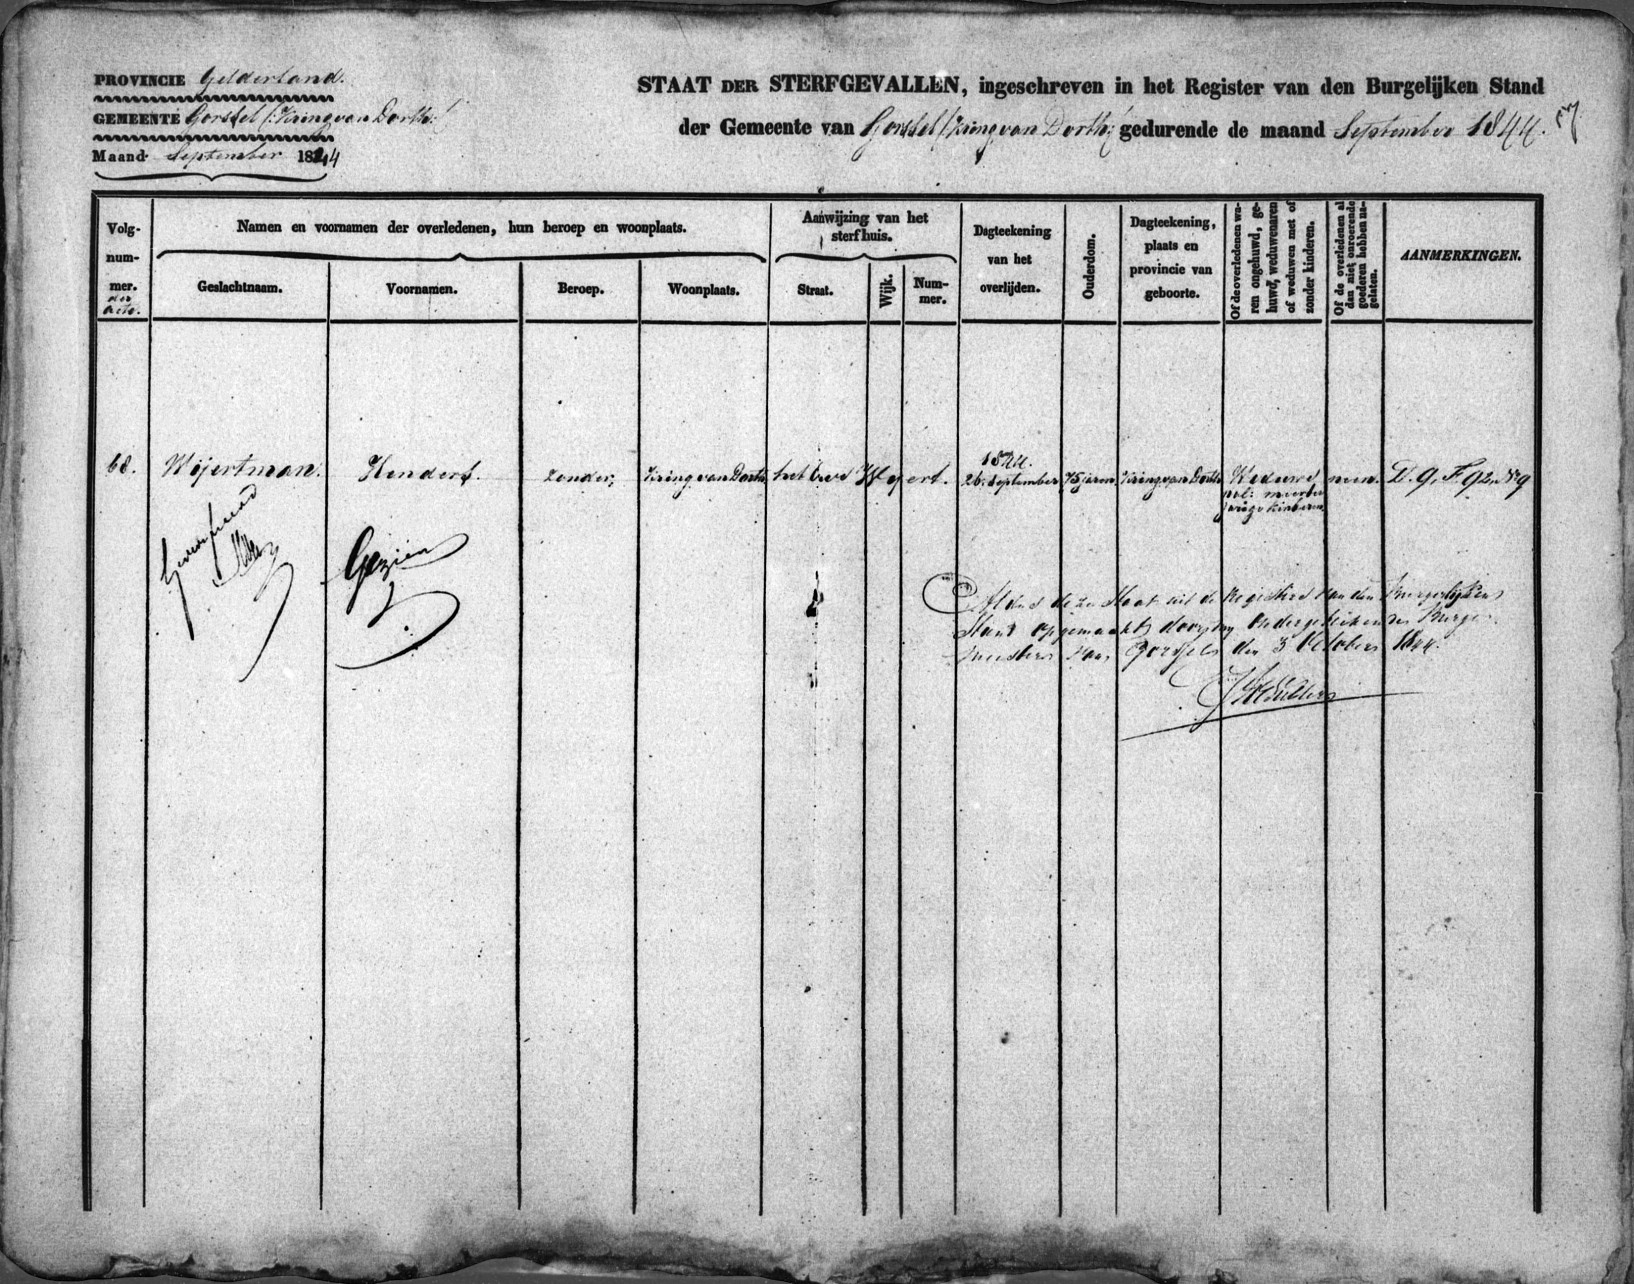 PROVINCIE Gelderland.
GEMEENTE Gorssel /:Kring van Dorth:/
Maand September 1844
STAAT DER STERFGEVALLEN, ingeschreven in het Register van den Burgelijken Stand
der Gemeente van Gorssel /:Kring van Dorth:/ gedurende de maand September 1844.
Volg-
num-
mer.
der
Acte.
Namen en voornamen der overledenen, hun beroep en woonplaats.
Geslachtnaam.
Voornamen.
Beroep.
Woonplaats.
Aanwijzing van het
sterfhuis.
Straat.
Wijk.
Num-
mer.
Dagteekening
van het
overlijden.
Ouderdom.
Dagteekening,
plaats en
provincie van
geboorte.
Of de overledenen wa-
ren ongehuwd, ge-
huwd, weduwenaren
of weduwen met of
zonder kinderen.
Of de overledenen al
dan niet onroerende
goederen hebben na-
gelaten.
AANMERKINGEN.
68. Wijertman. Hendert. zonder, Kring van Dorth het Erve Wyert. 1844. 26. September 75 jaren Kring van Dorth Weduwe neen. D. 9, F. 92, No 9
meerder
jarige kinderen
Gezien
Aldus deze Staat uit de Registers van den Burgerlijken
Stand opgemaakt door my ondergeteekenden Burge
meester van Gorssel den 3 October 1844.